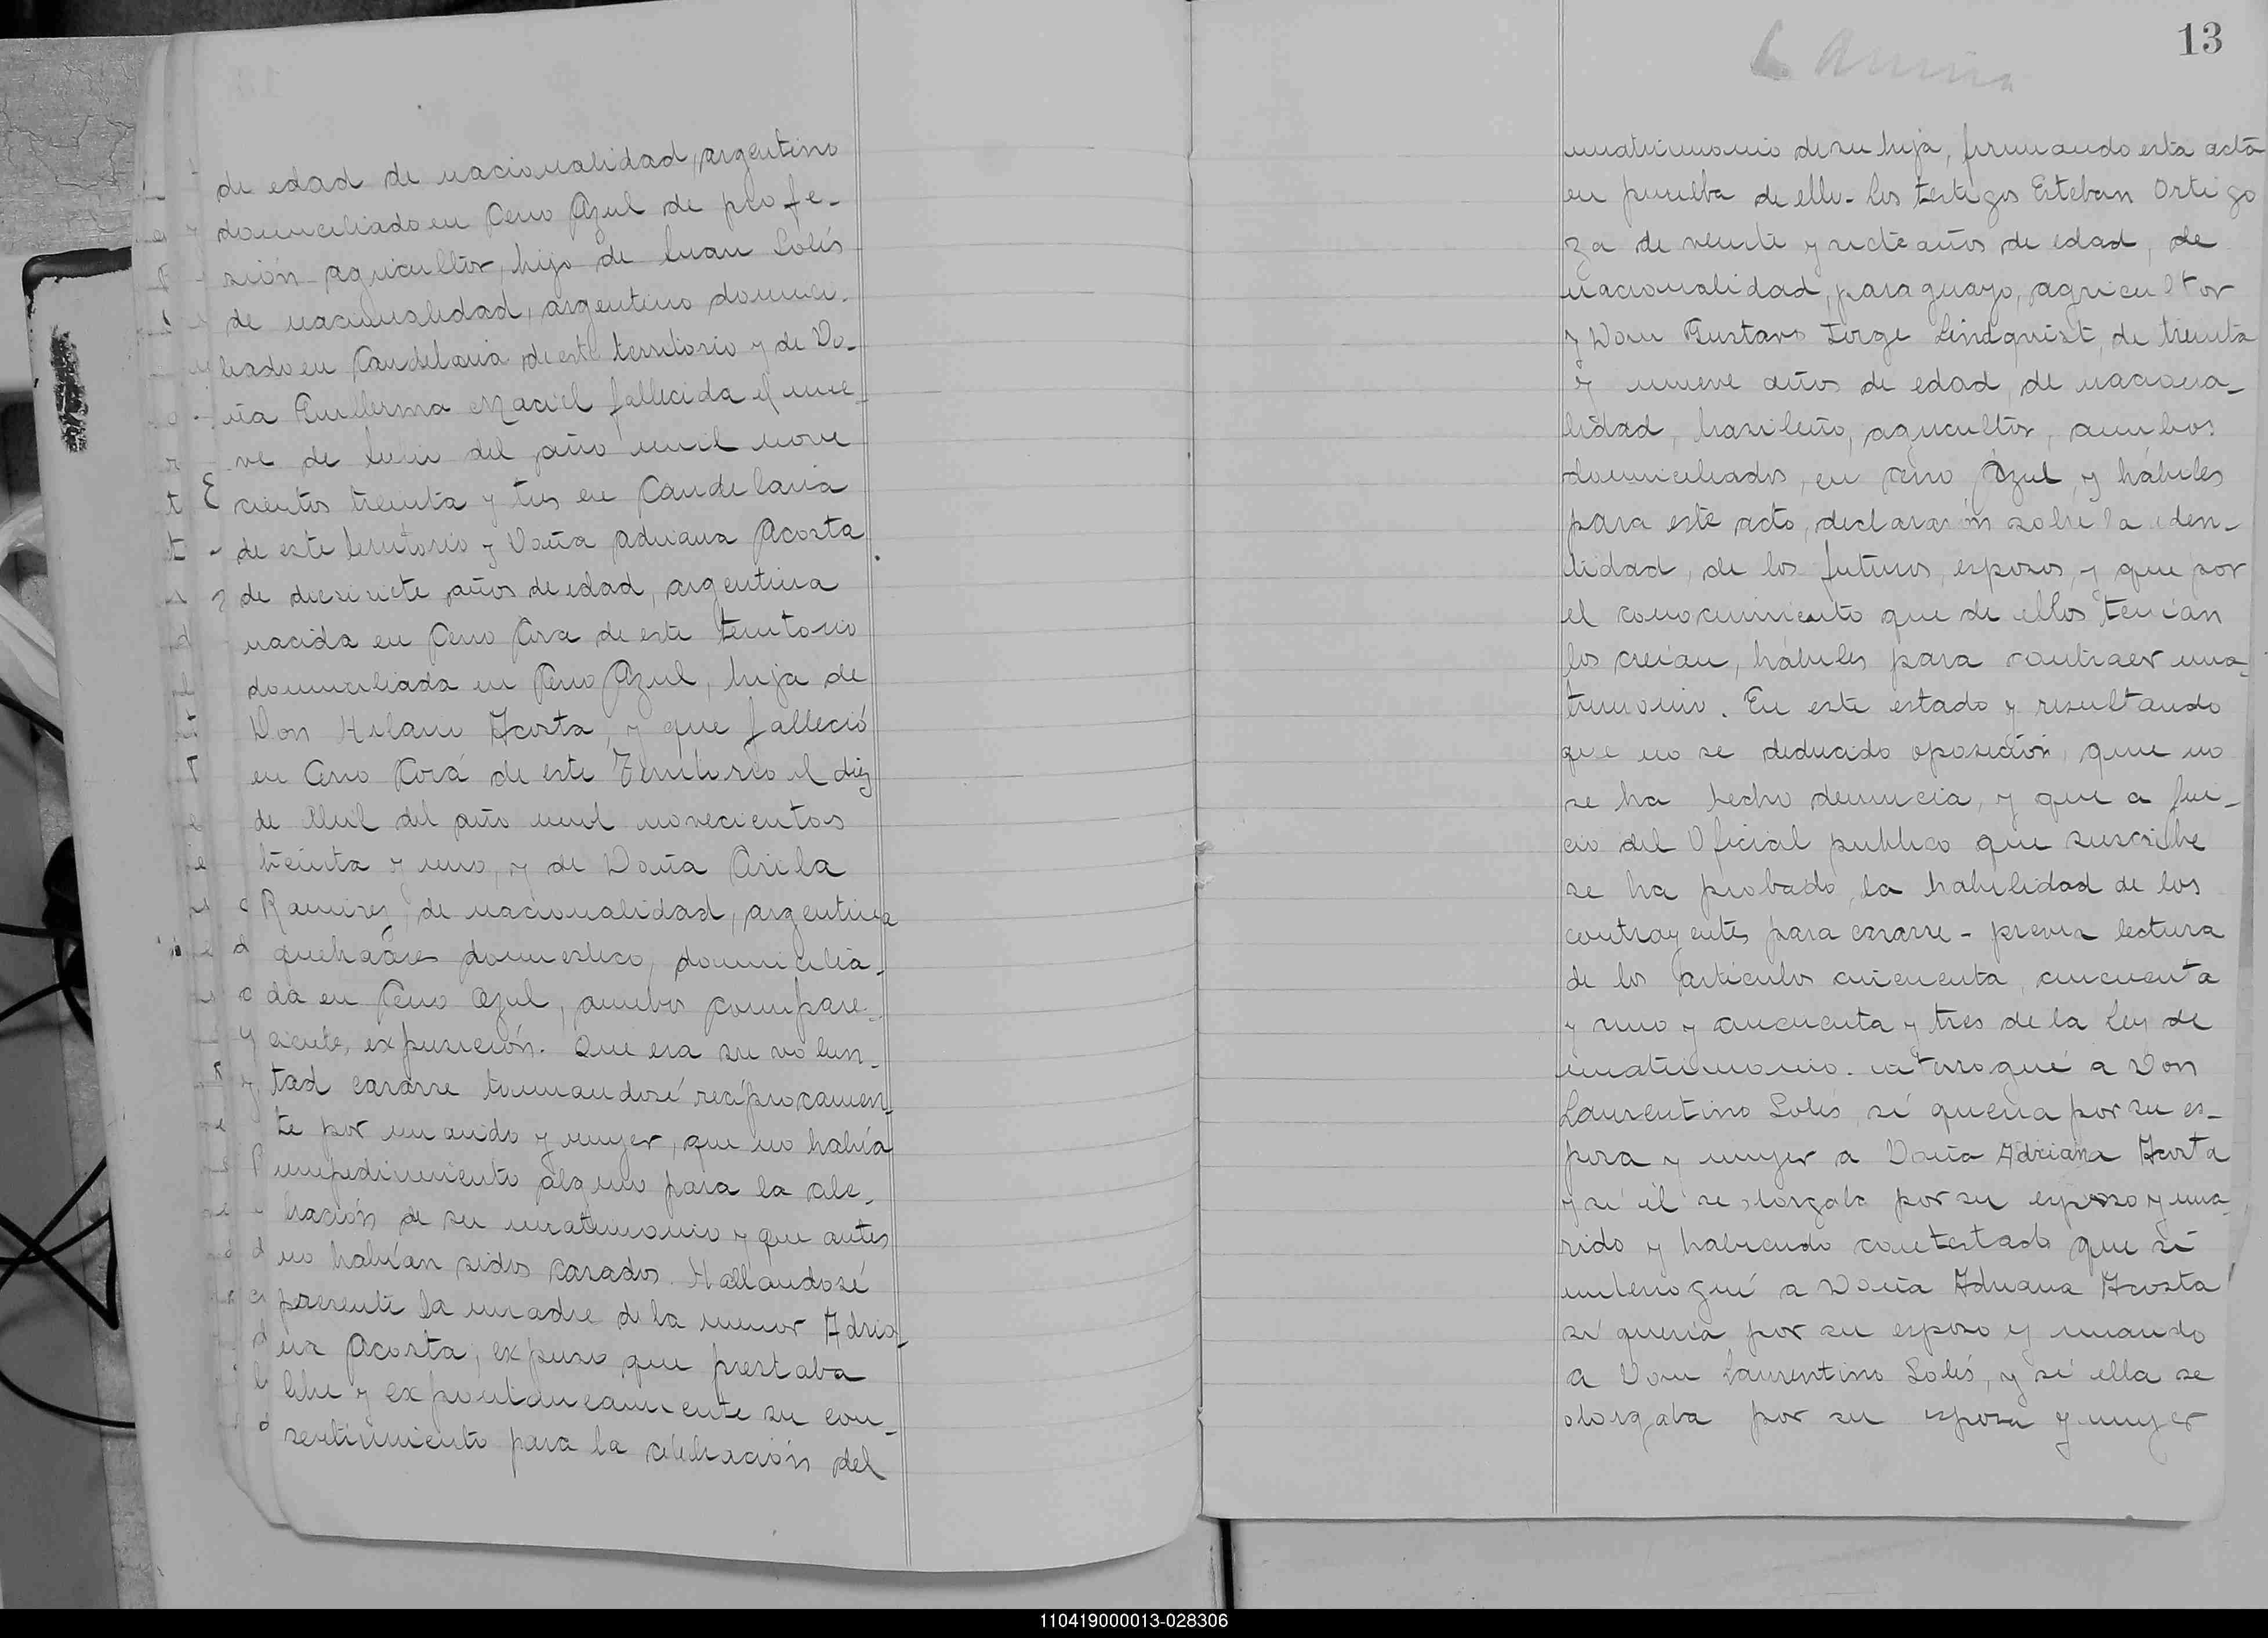 de edad de nacionalidad, argentino
domiciliado en Cerro Azul de profe-
sión agricultor, hijo de Juan Solís
de nacionalidad, argentino domici-
liado en Candelaria de este territorio y de Do-
ña Guillerma Maciel fallecida el nue-
ve de Junio del año mil nove
cientos treinta y tres en Candelaria
de este territorio y Doña Adriana Acosta
de diesisiete años de edad, argentina
nacida en Cerro Cora de este territorio
domiciliada en Cerro Azul, hija de
Don Hilario Acosta, y que falleció
en Cerro Corá de este Territorio el diez
de Abril del año mil novecientos
treinta y uno, y de Doña
Ramirez, de nacionalidad, argentina
quehaares domestico, domicilia-
da en Cerro Azul, ambos compare-
ciente, expusieron. Que era su volun-
tad casarse tomandosé recíprocamen-
te por marido y mujer, que no había
impedimiento alguno para la cele-
bración de su matrimonio y que antes
no habían sidos casados. Hallandosé
presente la madre de la menor Adria-
na Acosta, expuso que prestaba
libre y expontaneamente su con-
sentimiento para la celebración del
13
matrimonio de su hija, firmando esta acta
en prueba de ello- los testigos Esteban Ortigo
za de veinte y siete años de edad, de
nacionalidad, paraguayo, agricultor
y Don Gustavo Jorge Lindquist, de treinta
y nueve años de edad, de naciona-
lidad, brasileño, agricultor, ambos
domiciliados, en Cerro Azul, y hábiles
para este acto, declararon sobre la iden-
tidad, de los futuros, esposos, y que por
el conocimiento que de ellos tenían
los creían, hábiles para contraer ma-
trimonio. En este estado y resultando
que no se deducido oposición, que no
se ha hecho denuncia, y que a jui-
cio del Oficial publico que suscribe
se ha probado, la habilidad de los
contrayentes para casarse - previa lectura
de los artículos cincuenta, cincuenta
y uno y cincuenta y tres de la Ley de
matrimonio. interrogué a Don
Laurentino Solís, sí quería por su es-
posa y mujer a Doña Adriana Acosta
y si él se otorgaba por su esposo y ma-
rido y habiendo contestado que sí
interrogué a Doña Adriana Acosta
sí quería por su esposo y marido
a Don Laurentino Solís, y sí ella se
otorgaba por su esposa y mujer
110419000013-028306